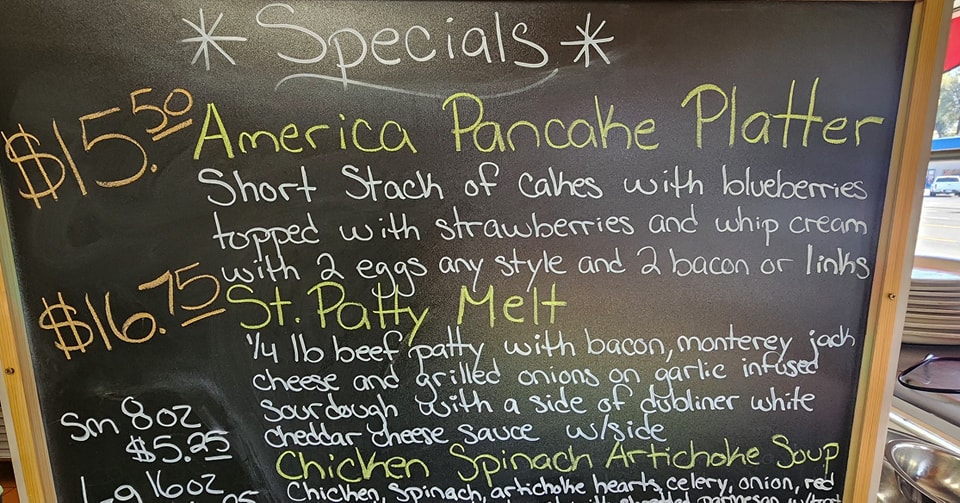 * Specials *
$15.50 America Pancake Platter
Short Stack of Cakes with blueberries
topped with strawberries and whip cream
with 2 eggs any style and 2 bacon or links
$16.75 St. Patty Melt
1/4 lb beef patty with bacon, monterey jack
cheese and grilled onions on garlic infused
sourdough with a side of dubliner white
cheddar cheese sauce w/side
Sm 8oz
$5.25
Chicken Spinach Artichoke Soup
Lg 16oz
Chicken, Spinach, artichoke hearts, celery, onion, red